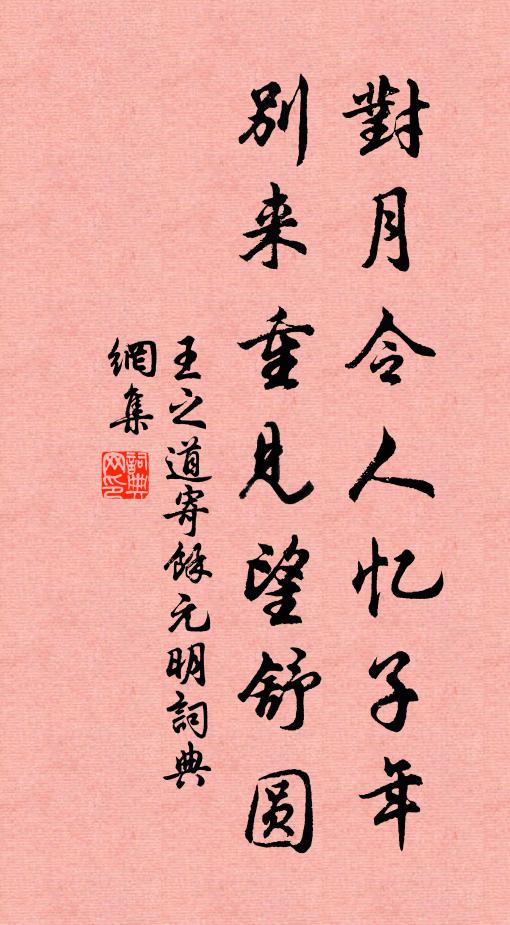 對月令人忆子年
別来重見望舒圆
王之道寄餘元明詞典
網集
詞典网印